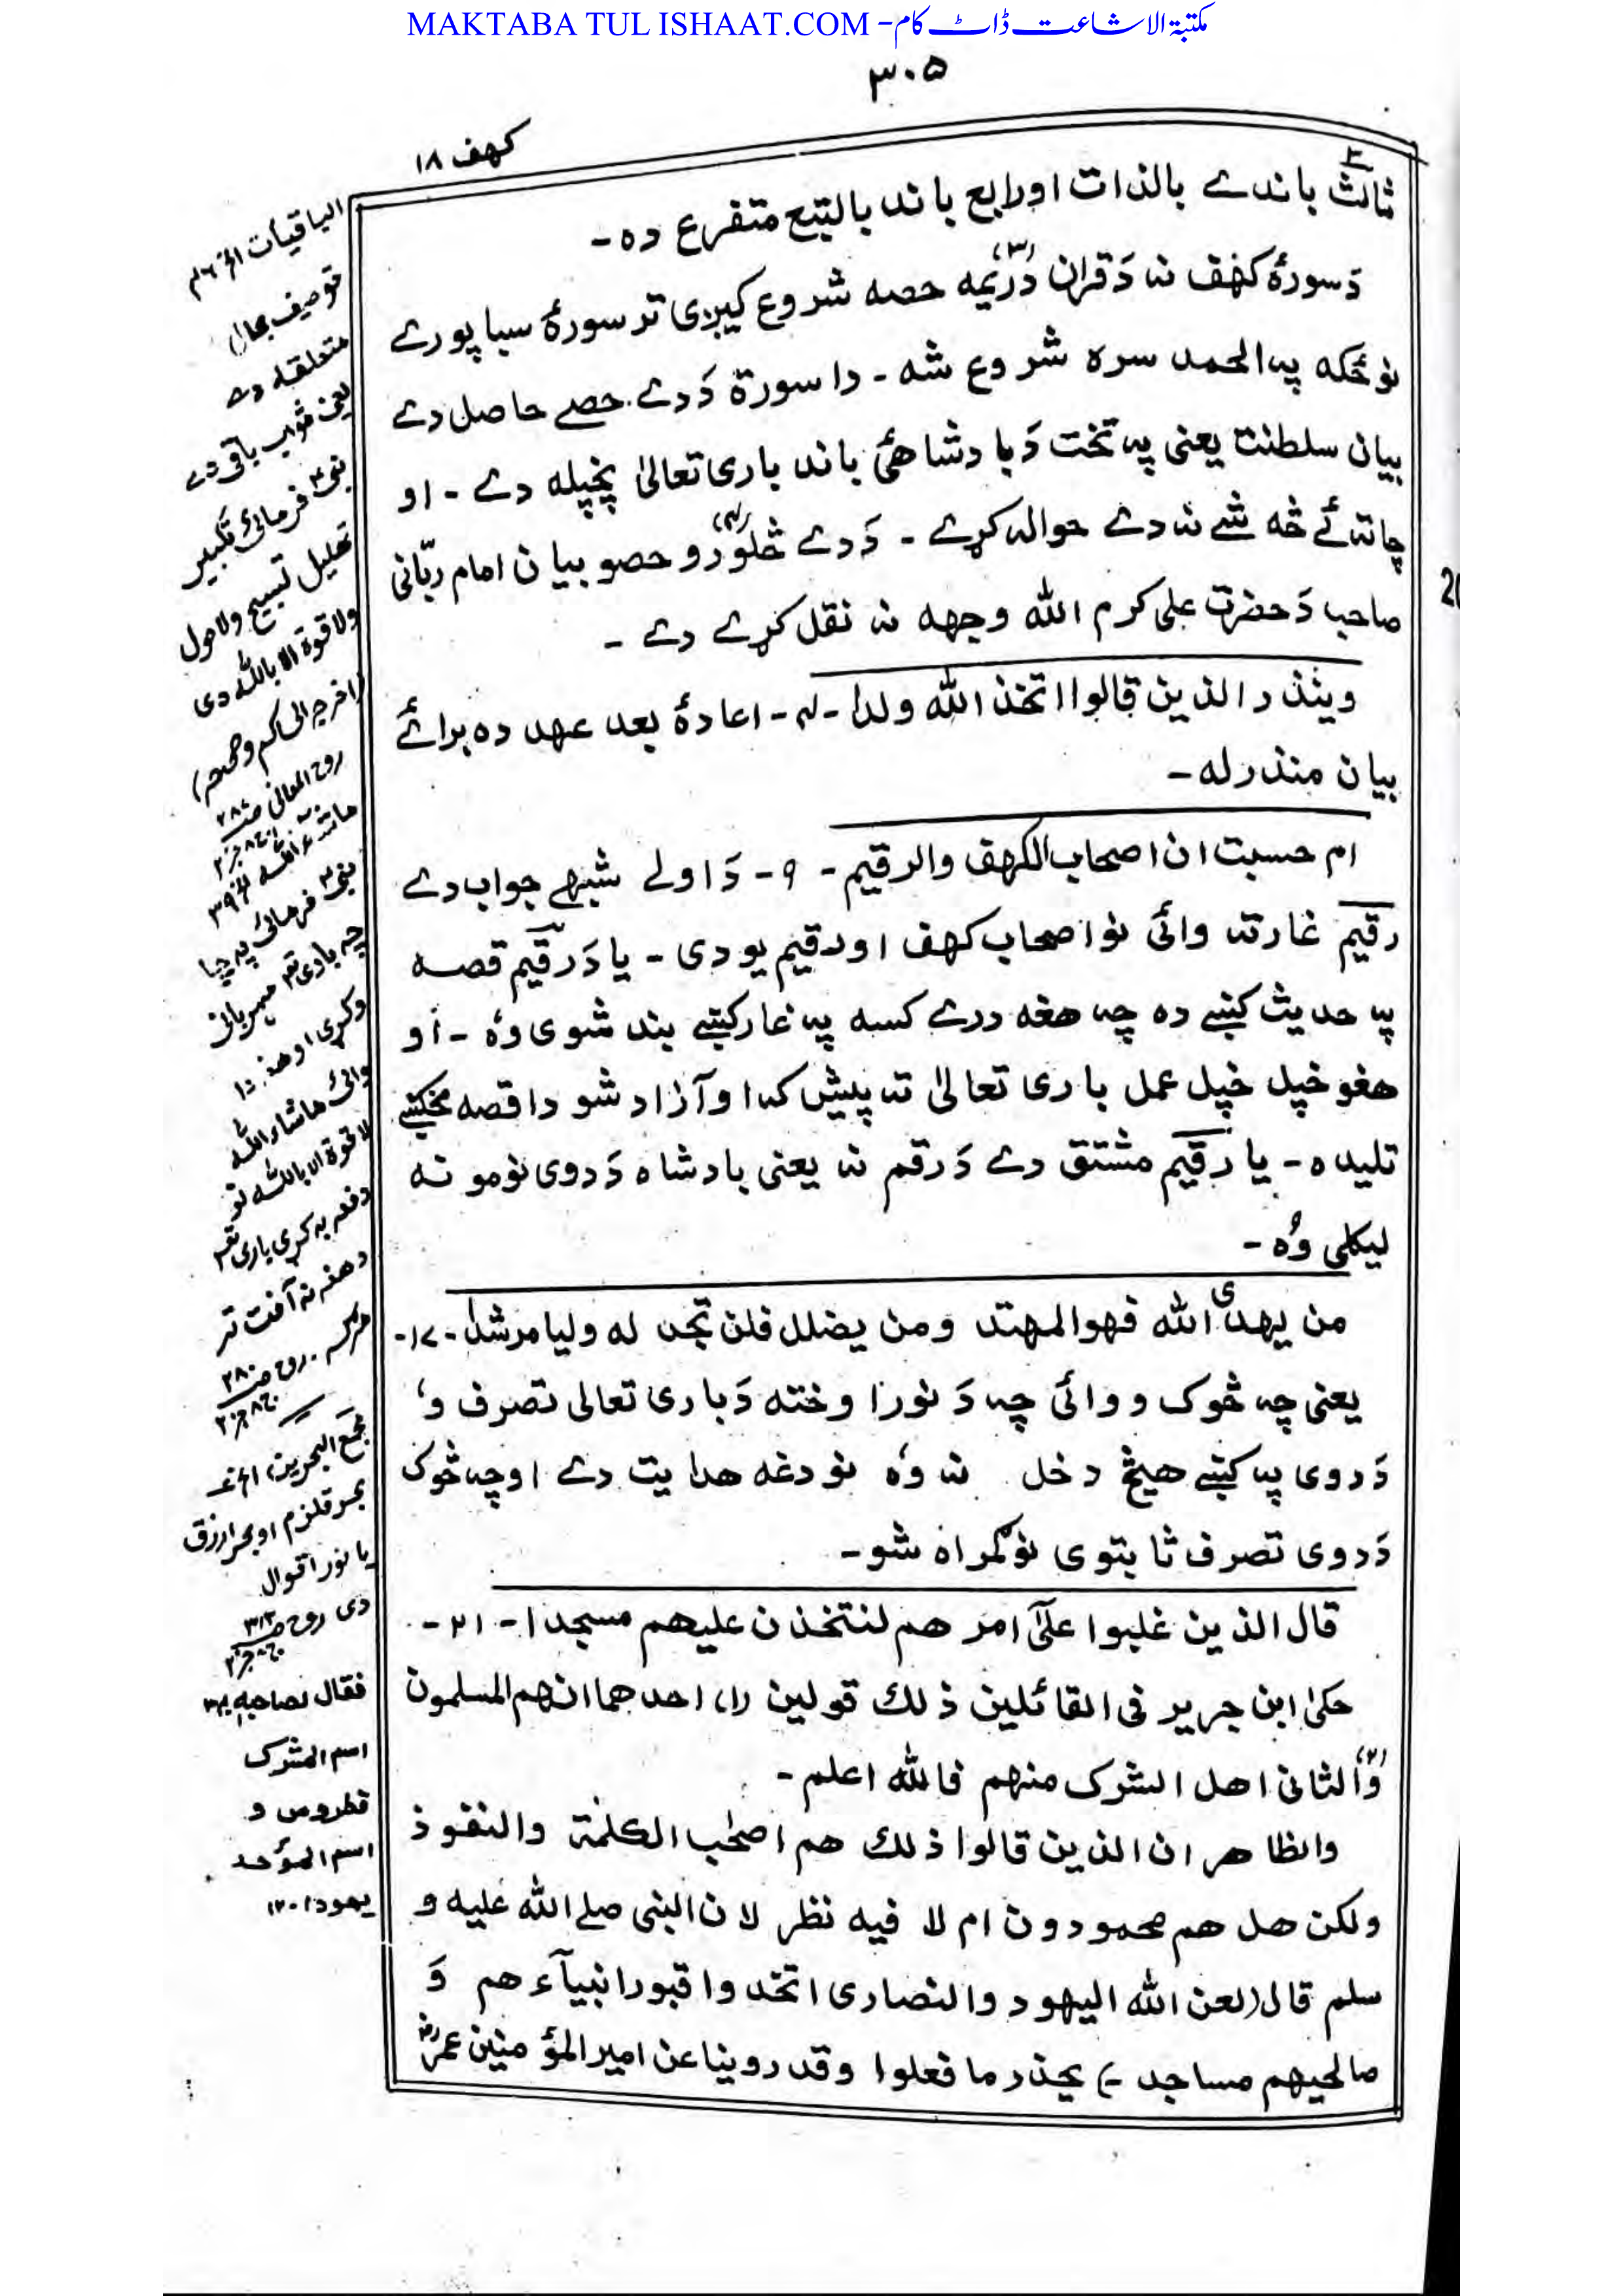 MAKTABA TUL ISHAAT.COM - مکتبۃ الاشاعت ڈاٹ کام
۳۰۵
کهف ۱۸
ثالث باندے بالذات اورابع باند بالتبع متفرع دہ -
دَسورۂ کهف نہ دَقران دریمہ (۳) حصہ شروع کیږی تر سورۂ سبا پورے
نو ځکہ پہ الحمد سرہ شروع شہ - دا سورة دَدے حصے حاصل دے
بیان سلطنت یعنی پہ تخت دَبادشاهیٔ باند باری تعالیٰ پخپلہ دے - او
چاتہ ئے څہ شے نہ دے حوالہ کړے - دَدے څلورو (۴) حصو بیان امام ربّانی
صاحب دَحضرت علی کرم الله وجهہ نہ نقل کړے دے -
وینذر الذین قالوا اتخذ الله ولدا -۴- اعادۂ بعد عهد دہ برائے
بیان منذر لہ -
ام حسبت ان اصحاب الکهف والرقیم - ۹ - دَاولے شبهے جواب دے
رقیم غار تہ وائی نو اصحاب کهف اورقیم یو دی - یا دَرقیم قصہ
پہ حدیث کښے دہ چہ هغہ درے کسہ پہ غار کښے بند شوی وہ - او
هغو خپل خپل عمل باری تعالیٰ تہ پیش کہ او آزاد شو دا قصہ مخکښے
تلیدہ - یا رقیم مشتق دے دَرقم نہ یعنی بادشاہ دَدوی نومونہ
لیکلی وُہ -
من یهدی الله فهو المهتد ومن یضلل فلن تجد له ولیا مرشدا -۱۷-
یعنی چہ څوک ووائی چہ دَنورا وختہ دَباری تعالی تصرف وُ
دَدوی پہ کښے هیڅ دخل نہ وُہ نو دغہ هدایت دے اوچہ څوک
دَدوی تصرف ثابتوی نو گمراہ شو -
قال الذین غلبوا علیٰ امرهم لنتخذن علیهم مسجدا - ۲۱ -
حکیٰ ابن جریر فی القائلین ذلك قولین (۱) احدهما انهم المسلمون
(۲) والثانی اهل الشرک منهم فالله اعلم -
والظاهر ان الذین قالوا ذلك هم اصحٰب الکلمة والنفوذ
ولکن هل هم محمودون ام لا فیه نظر لان النبی صلے الله علیه و
سلم قال (لعن الله الیهود والنصاری اتخذوا قبور انبیآءهم و
صالحیهم مساجد -) یحذر ما فعلوا وقد روینا عن امیر المؤمنین عمرؓ
الباقیات الخ ۴۶
توصیف بحال
متعلقہ دے
یعنی ثواب باقی دے
نبیؐ فرمائی تکبیر
تهلیل تسبیح ولاحول
ولاقوة الا بالله دی
(اخرجہ الحاکم وصححہ)
روح المعانی
ماشاء الله الخ ۳۹
نبیؐ فرمائی پہ چا
چہ باری تعہ مهربانی
وکړی او هغہ دا
وائی ماشاء الله
لاقوة الا بالله نو
دفعہ بہ کړی باری تعہ
دهغہ نہ آفت تر
مجمع البحرین، الخ
بحر قلزم او بحر ازرق
یا نور اقوال
دی روح
فقال لصاحبه ۳۴
اسم المشرک
قطروس و
اسم المؤحد
یهودا ۱۲۰